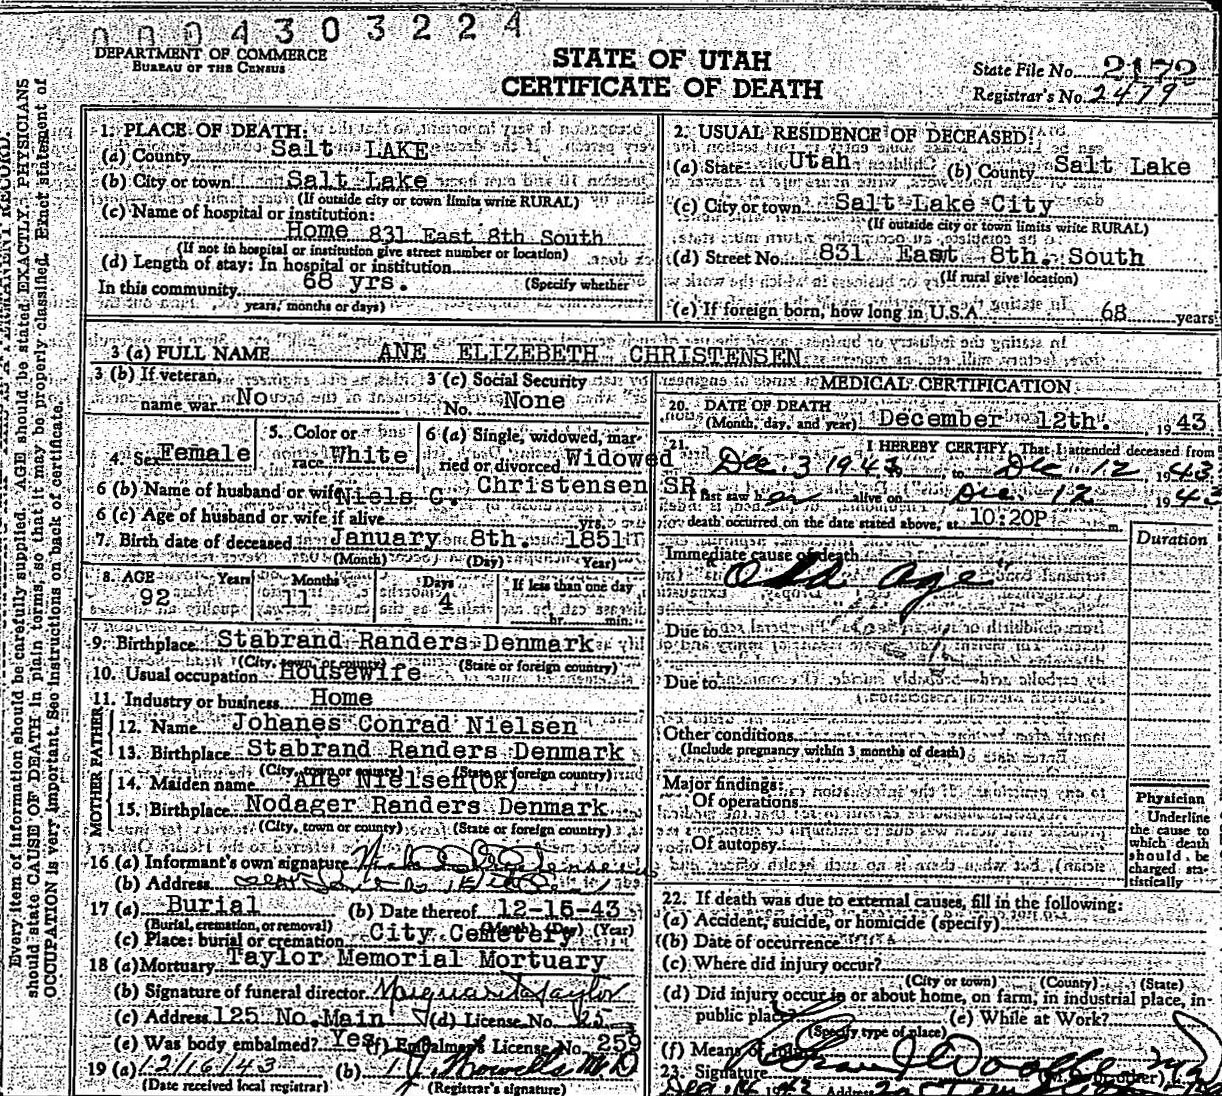 0004303224
DEPARTMENT OF COMMERCE
BUREAU OF THE CENSUS
STATE OF UTAH
CERTIFICATE OF DEATH
State File No. 2172
Registrar's No. 2479
Every item of information should be carefully supplied. AGE should be stated EXACTLY. PHYSICIANS
should state CAUSE OF DEATH in plain terms, so that it may be properly classified. Exact statement of
OCCUPATION is very important. See instructions on back of certificate.
1. PLACE OF DEATH:
(a) County Salt LAKE
(b) City or town Salt Lake
(If outside city or town limits write RURAL)
(c) Name of hospital or institution:
Home 831 East 8th South
(If not in hospital or institution give street number or location)
(d) Length of stay: In hospital or institution
(Specify whether
In this community 68 yrs.
years, months or days)
2. USUAL RESIDENCE OF DECEASED:
(a) State Utah (b) County Salt Lake
(c) City or town Salt Lake City
(If outside city or town limits write RURAL)
(d) Street No. 831 East 8th. South
(If rural give location)
(e) If foreign born, how long in U.S.A. 68 years
3 (a) FULL NAME ANE ELIZEBETH CHRISTENSEN
3 (b) If veteran, name war No
3 (c) Social Security No. None
4. Sex Female
5. Color or race White
6 (a) Single, widowed, married or divorced Widowed
6 (b) Name of husband or wife Niels C. Christensen SR
6 (c) Age of husband or wife if alive yrs.
7. Birth date of deceased January 8th. 1851
(Month) (Day) (Year)
8. AGE Years 92 Months 11 Days 4 If less than one day
hr. min.
9. Birthplace Stabrand Randers Denmark
(City, town or county) (State or foreign country)
10. Usual occupation Housewife
11. Industry or business Home
FATHER
12. Name Johanes Conrad Nielsen
13. Birthplace Stabrand Randers Denmark
(City, town or county) (State or foreign country)
MOTHER
14. Maiden name Ane Nielsen(OK)
15. Birthplace Nodager Randers Denmark
(City, town or county) (State or foreign country)
16 (a) Informant's own signature
(b) Address
17 (a) Burial (b) Date thereof 12-15-43
(Burial, cremation, or removal) (Month) (Day) (Year)
(c) Place: burial or cremation City Cemetery
18 (a) Mortuary Taylor Memorial Mortuary
(b) Signature of funeral director Marguarita Taylor
(c) Address 125 No. Main (d) License No. 25
(e) Was body embalmed? Yes (f) Embalmer's License No. 259
19 (a) 12/16/43 (b) M D
(Date received local registrar) (Registrar's signature)
MEDICAL CERTIFICATION
20. DATE OF DEATH
(Month, day, and year) December 12th. 1943
21. I HEREBY CERTIFY, That I attended deceased from
Dec. 3 1943 to Dec 12 1943
I last saw her alive on Dec. 12 1943
death occurred on the date stated above, at 10:20P m.
Duration
Immediate cause of death
Old age
Due to
Due to
Other conditions
(Include pregnancy within 3 months of death)
Major findings:
Of operations
Of autopsy
Physician
Underline
the cause to
which death
should be
charged sta-
tistically
22. If death was due to external causes, fill in the following:
(a) Accident, suicide, or homicide (specify)
(b) Date of occurrence
(c) Where did injury occur?
(City or town) (County) (State)
(d) Did injury occur in or about home, on farm, in industrial place, in
public place? (e) While at Work?
(Specify type of place)
(f) Means of injury
23. Signature
Dec. 14 1943 Address